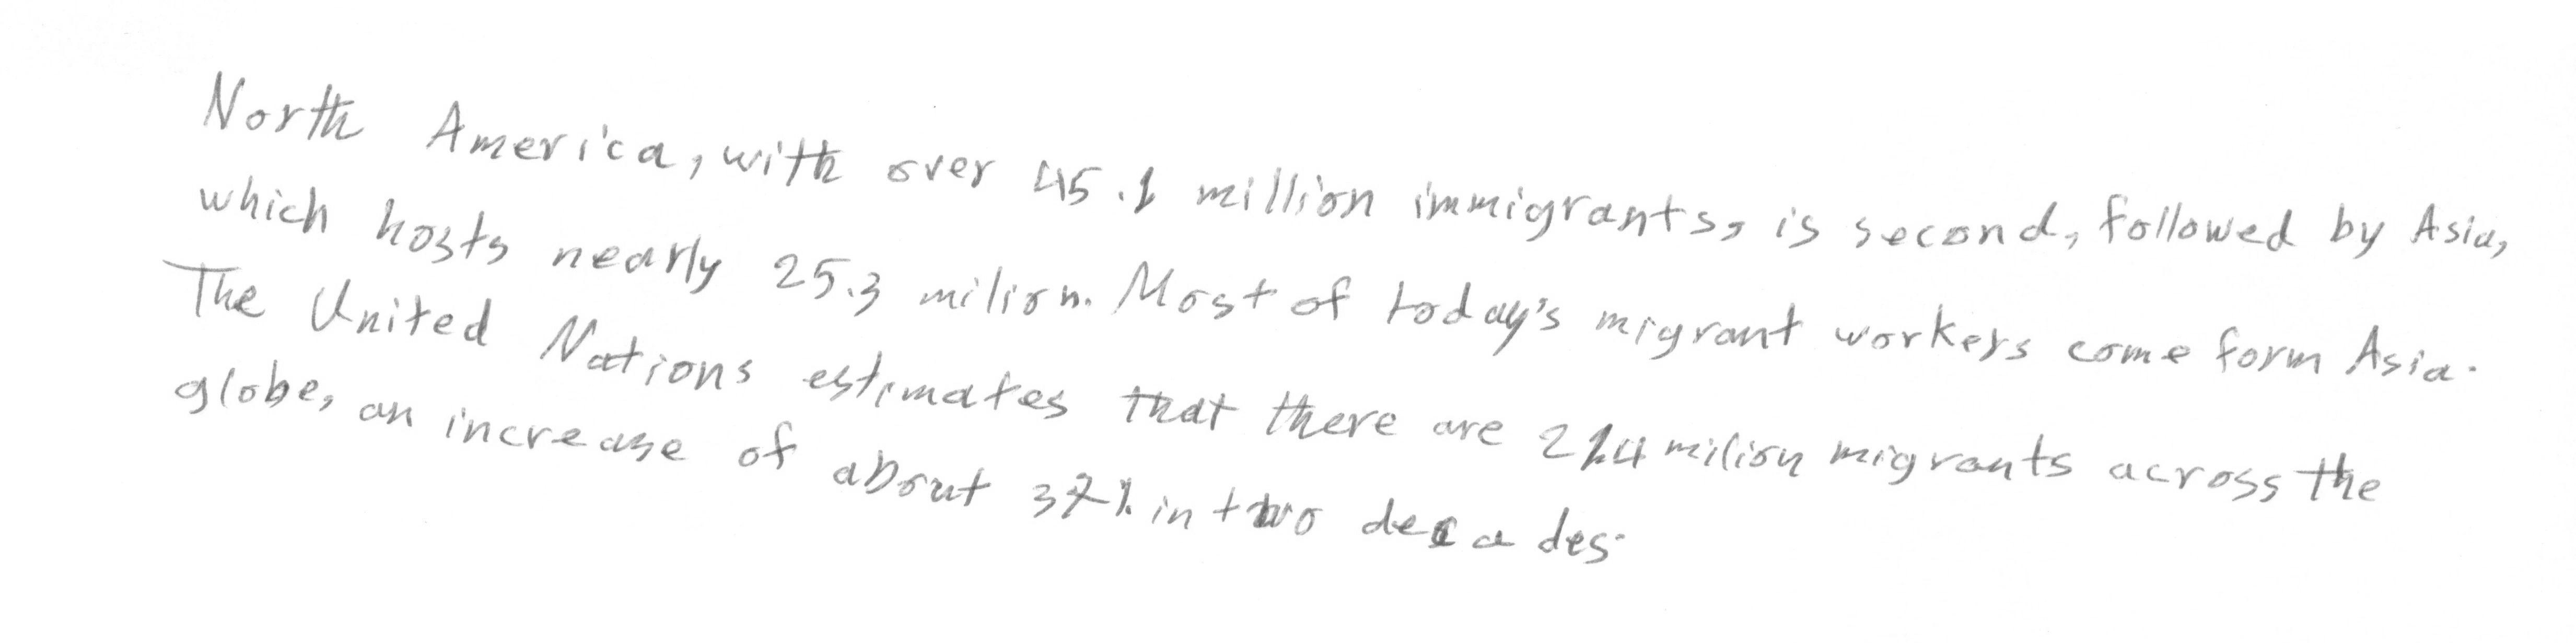 North America, with over 45.1 million immigrants, is second, followed by Asia,
which hosts nearly 25.3 milion. Most of today's migrant workers come form Asia.
The United Nations estimates that there are 214 milion migrants across the
globe, an increase of about 37% in two decades.